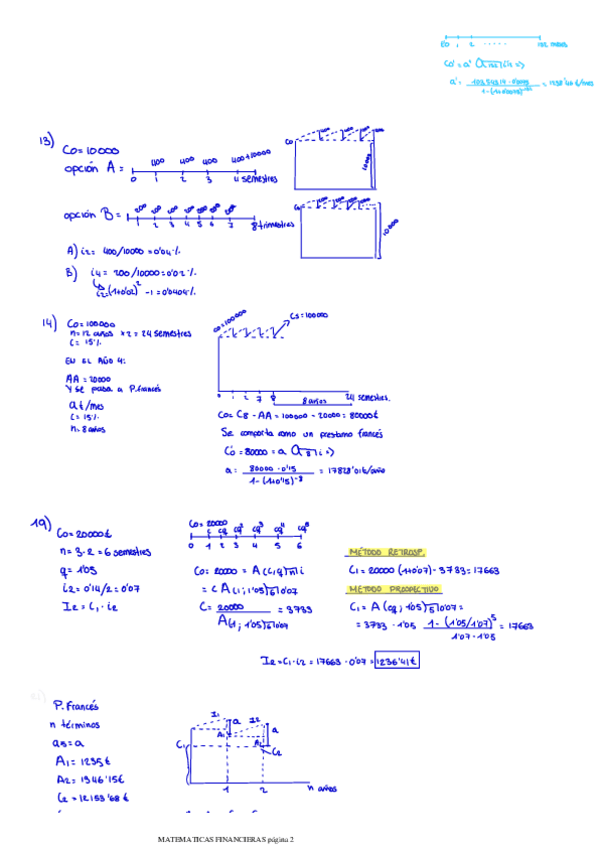 0 1 2 ..... 132 meses
Co' = a' a132|i4 =>
a' = 103.543'14 · 0'003 / 1-(1+0'003)^-132 = 1238'40 €/mes
13) Co = 10000
opción A = 400 400 400 400+10000
0 1 2 3 4 semestres
Co 10000
opción B = 200 200 200 200 200 200 200
1 2 3 4 5 6 7 8 trimestres
10000
A) i2 = 400/10000 = 0'04 %
B) i4 = 200/10000 = 0'02 %
i2 = (1+0'02)^2 - 1 = 0'0404 %
14) Co = 100000
n = 12 años x 2 = 24 semestres
i = 15 %
EN EL AÑO 4:
AA = 20000
Y se pasa a P. francés
a €/mes
i = 15 %
n = 8 años
Co = 100000
C8 = 100000
0 1 2 7 8 24 semestres.
8 años
Co = C8 - AA = 100000 - 20000 = 80000 €
Se comporta como un prestamo francés
Co' = 80000 = a a8|i =>
a = 80000 · 0'15 / 1-(1+0'15)^-8 = 17828'01 €/año
19) Co = 20000 €
n = 3·2 = 6 semestres
q = 1'05
i2 = 0'14/2 = 0'07
I2 = C1 · i2
Co = 20000
c cq cq² cq³ cq⁴ cq⁵
0 1 2 3 4 5 6
Co = 20000 = A(c,q)n|i
= c A(1; 1'05)6|0'07
C = 20000 / A(1; 1'05)6|0'07 = 3733
MÉTODO RETROSP.
C1 = 20000 (1+0'07) - 3733 = 17663
MÉTODO PROSPECTIVO
C1 = A(cq; 1'05)5|0'07 =
= 3733 · 1'05 1-(1'05/1'07)^5 / 1'07-1'05 = 17663
I2 = C1 · i2 = 17663 · 0'07 = 1236'41 €
P. Francés
n términos
as = a
A1 = 1235 €
A2 = 1346'15 €
C2 = 12153'68 €
I1 a I2
A1 A2 a
C1 C2
1 2 n años
MATEMATICAS FINANCIERAS página 2